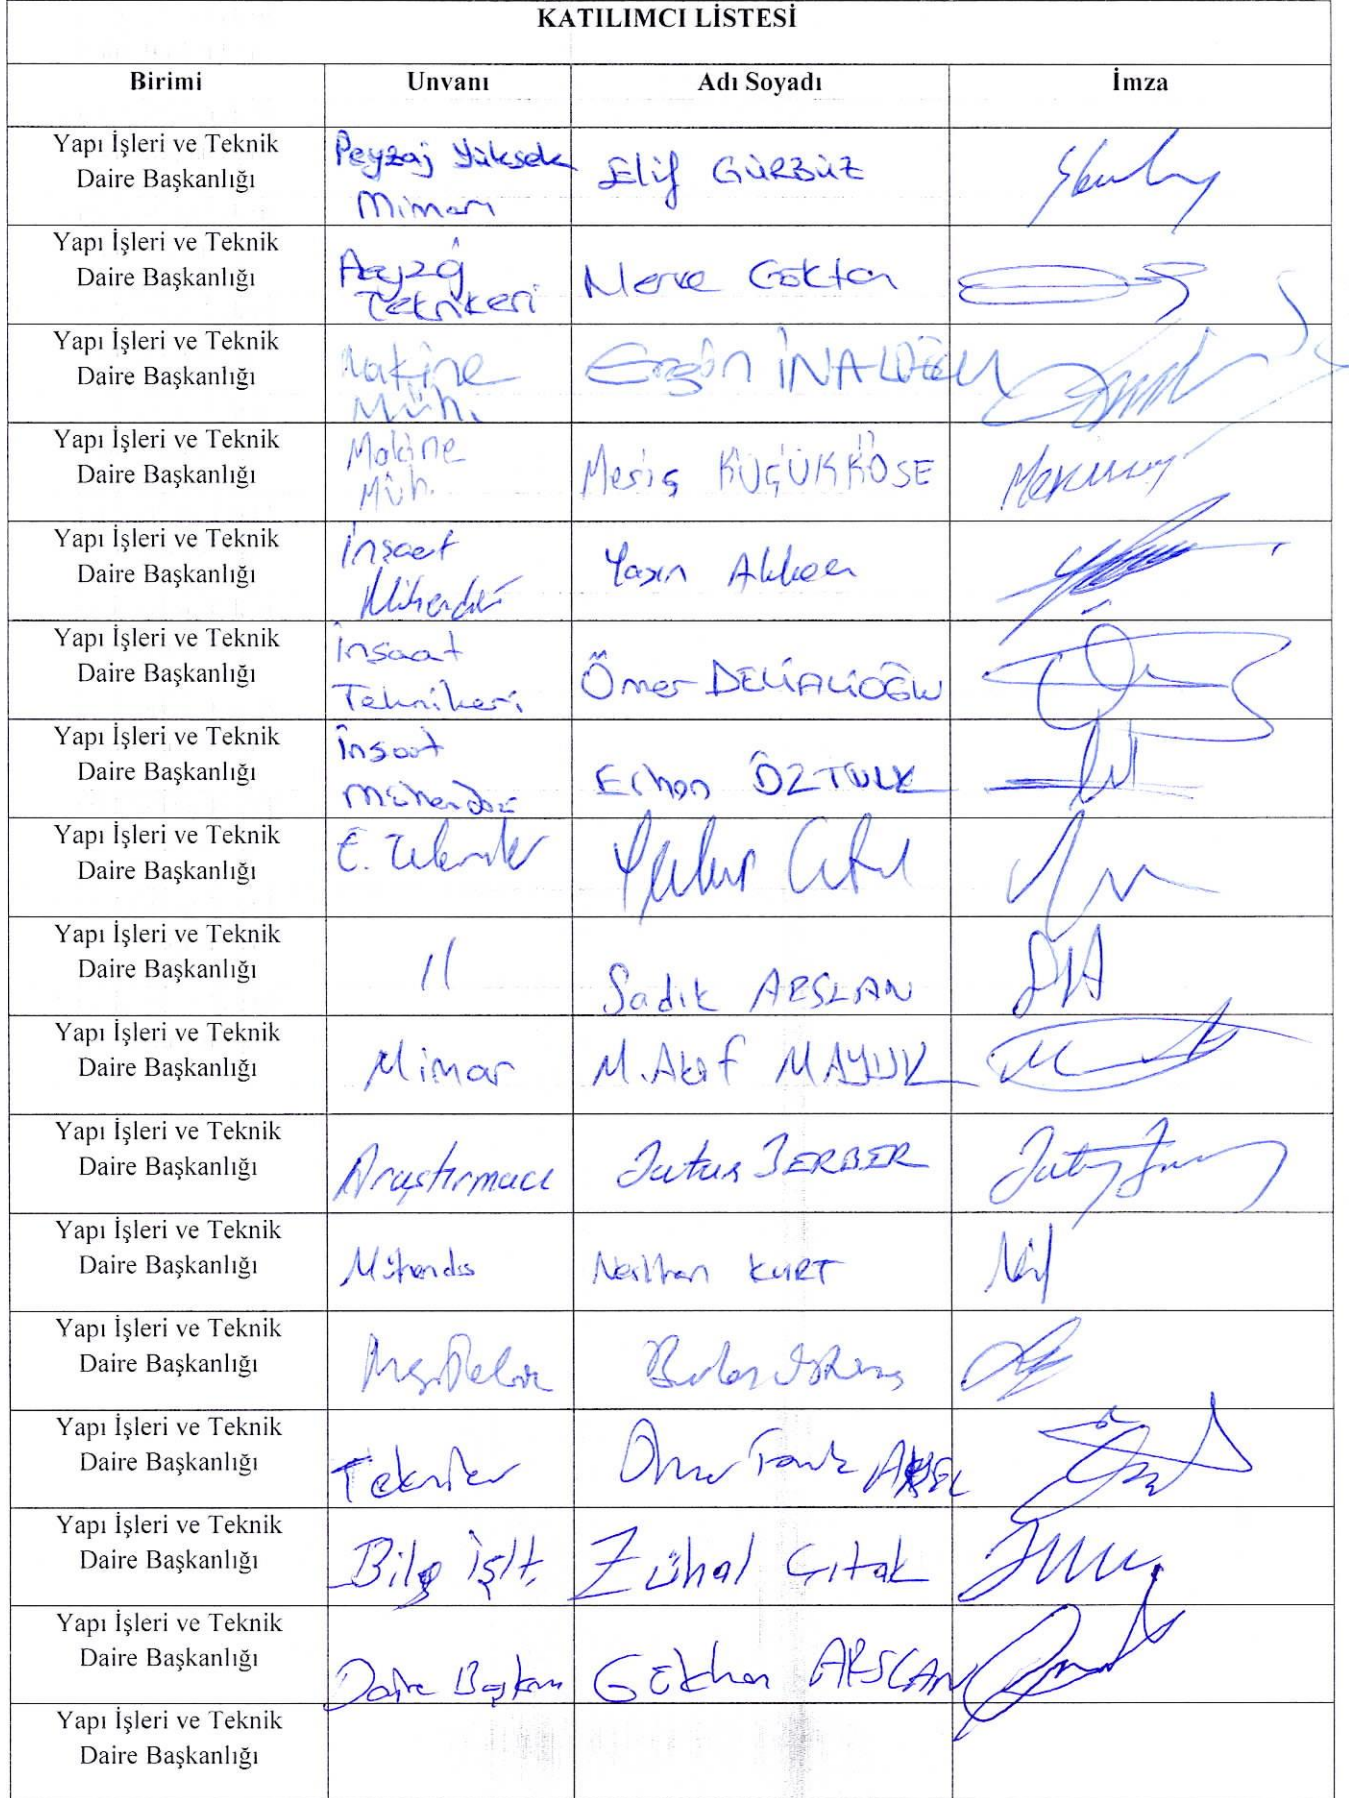 KATILIMCI LİSTESİ
Birimi Unvanı Adı Soyadı İmza
Yapı İşleri ve Teknik
Daire Başkanlığı
Peyzaj Yüksek
Mimarı
Elif GÜRBÜZ
Yapı İşleri ve Teknik
Daire Başkanlığı
Teknikeri
Merve Göktan
Yapı İşleri ve Teknik
Daire Başkanlığı
Makine
Müh.
Ergün İNALOĞLU
Yapı İşleri ve Teknik
Daire Başkanlığı
Makine
Müh.
Meriç KÜÇÜKKÖSE
Yapı İşleri ve Teknik
Daire Başkanlığı
İnşaat
Mühendisi
Yasin
Yapı İşleri ve Teknik
Daire Başkanlığı
İnşaat
Teknikeri
Ömer DELİALİOĞLU
Yapı İşleri ve Teknik
Daire Başkanlığı
İnşaat
Mühendisi
Erhan ÖZTÜRK
Yapı İşleri ve Teknik
Daire Başkanlığı
E. Tekniker
Yapı İşleri ve Teknik
Daire Başkanlığı
"
Sadık ARSLAN
Yapı İşleri ve Teknik
Daire Başkanlığı
Mimar
M. Akif MAYUK
Yapı İşleri ve Teknik
Daire Başkanlığı
Araştırmacı
BERBER
Yapı İşleri ve Teknik
Daire Başkanlığı
Mühendis
Neslihan KURT
Yapı İşleri ve Teknik
Daire Başkanlığı
Yapı İşleri ve Teknik
Daire Başkanlığı
Tekniker
Ömer Faruk
Yapı İşleri ve Teknik
Daire Başkanlığı
Bilg İşlt.
Zühal Çıtak
Yapı İşleri ve Teknik
Daire Başkanlığı
Daire Başkanı
Gökhan ARSLAN
Yapı İşleri ve Teknik
Daire Başkanlığı